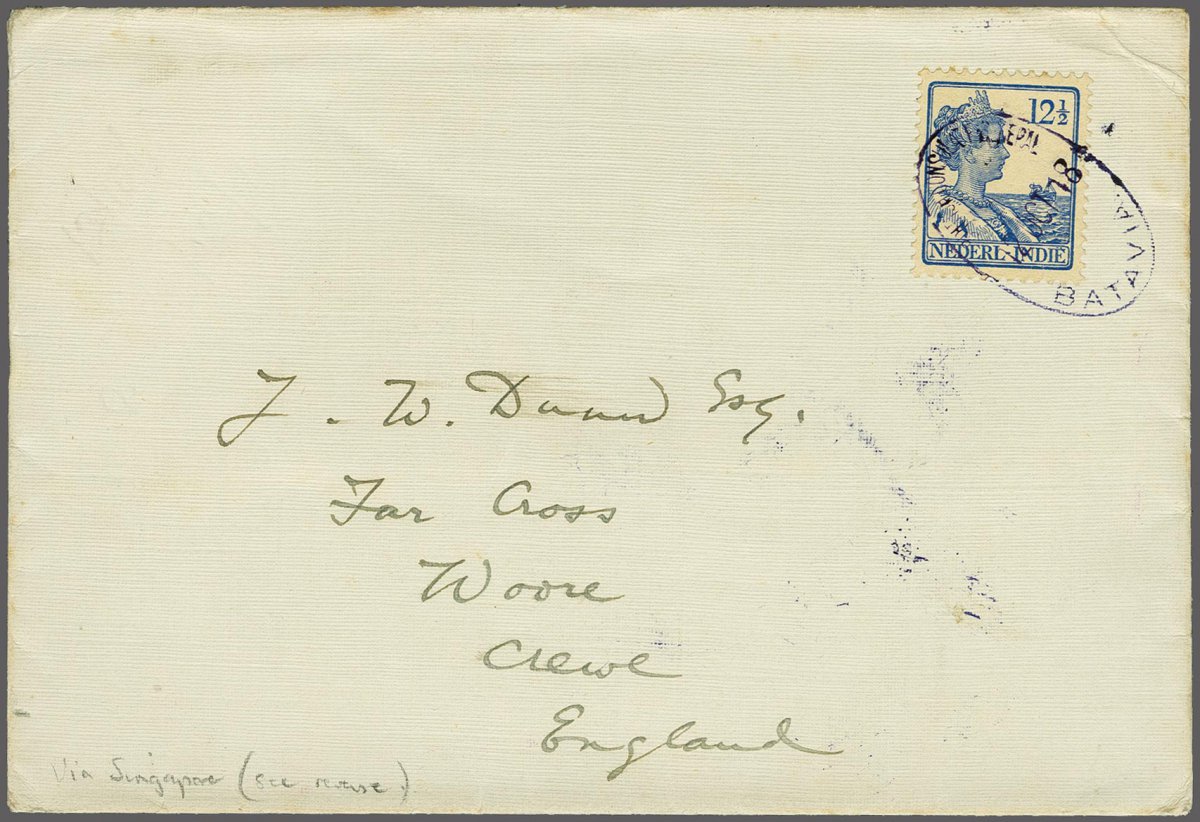 12½
NEDERL-INDIE
BATAVIA.
J. W. Dunn Esq.
Far Cross
Woore
Crewe
England
Via Singapore (see reverse.)